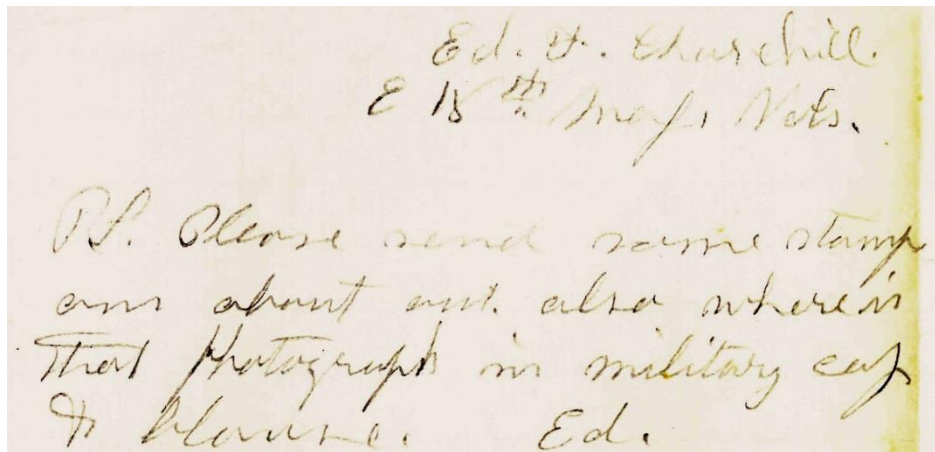 Ed. F. Churchill.
E 18th Mass Vols.
PS. Please send some stamps
am about out. also where is
that Photograph in military cap
& blouse. Ed.